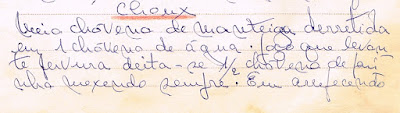 Choux
Meia chávena de manteiga derretida
em 1 chávena de água. Logo que levan
te fervura deita-se 1/2 chávena de fari
nha mexendo sempre. Em arrefecendo